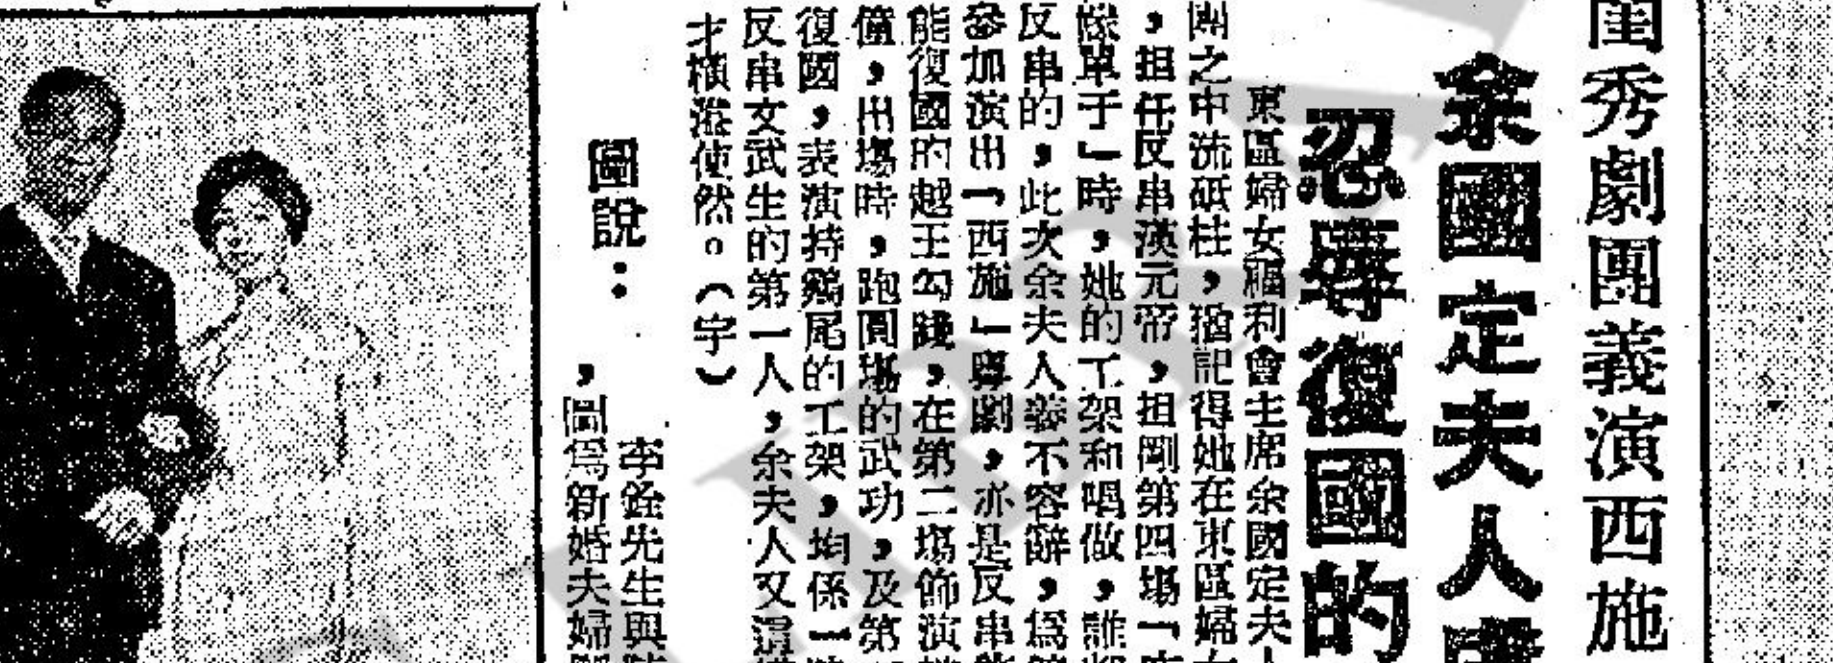 閨秀劇團義演西施
余國定夫人
忍辱復國的
東區婦女福利會主席余國定夫人
團之中流砥柱，猶記得她在東區婦女
，担任反串漢元帝，担剛第四場「
單于」時，她的工架和唱做，誰
反串的，此次余夫人義不容辭，爲
參加演出「西施」粵劇，亦是反串
能復國的越王勾踐，在第二場飾演
僮，出場時，跑圓場的武功，及第
復國，表演持鷄尾的工架，均係一
反串文武生的第一人，余夫人又謂
才橫溢使然。（宇）
圖說：
李銓先生與
，圖爲新婚夫婦